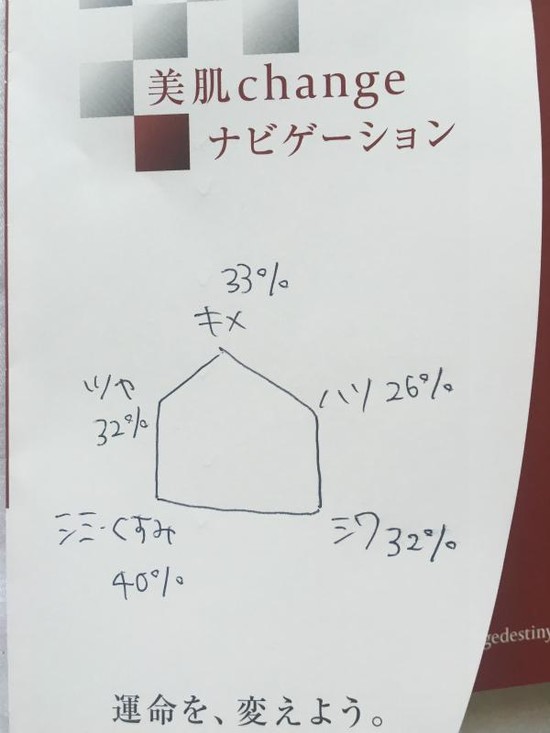 美肌change
ナビゲーション
33%
キメ
ツヤ
32%
ハリ 26%
シミ・くすみ
40%
シワ 32%
gedestiny
運命を、変えよう。